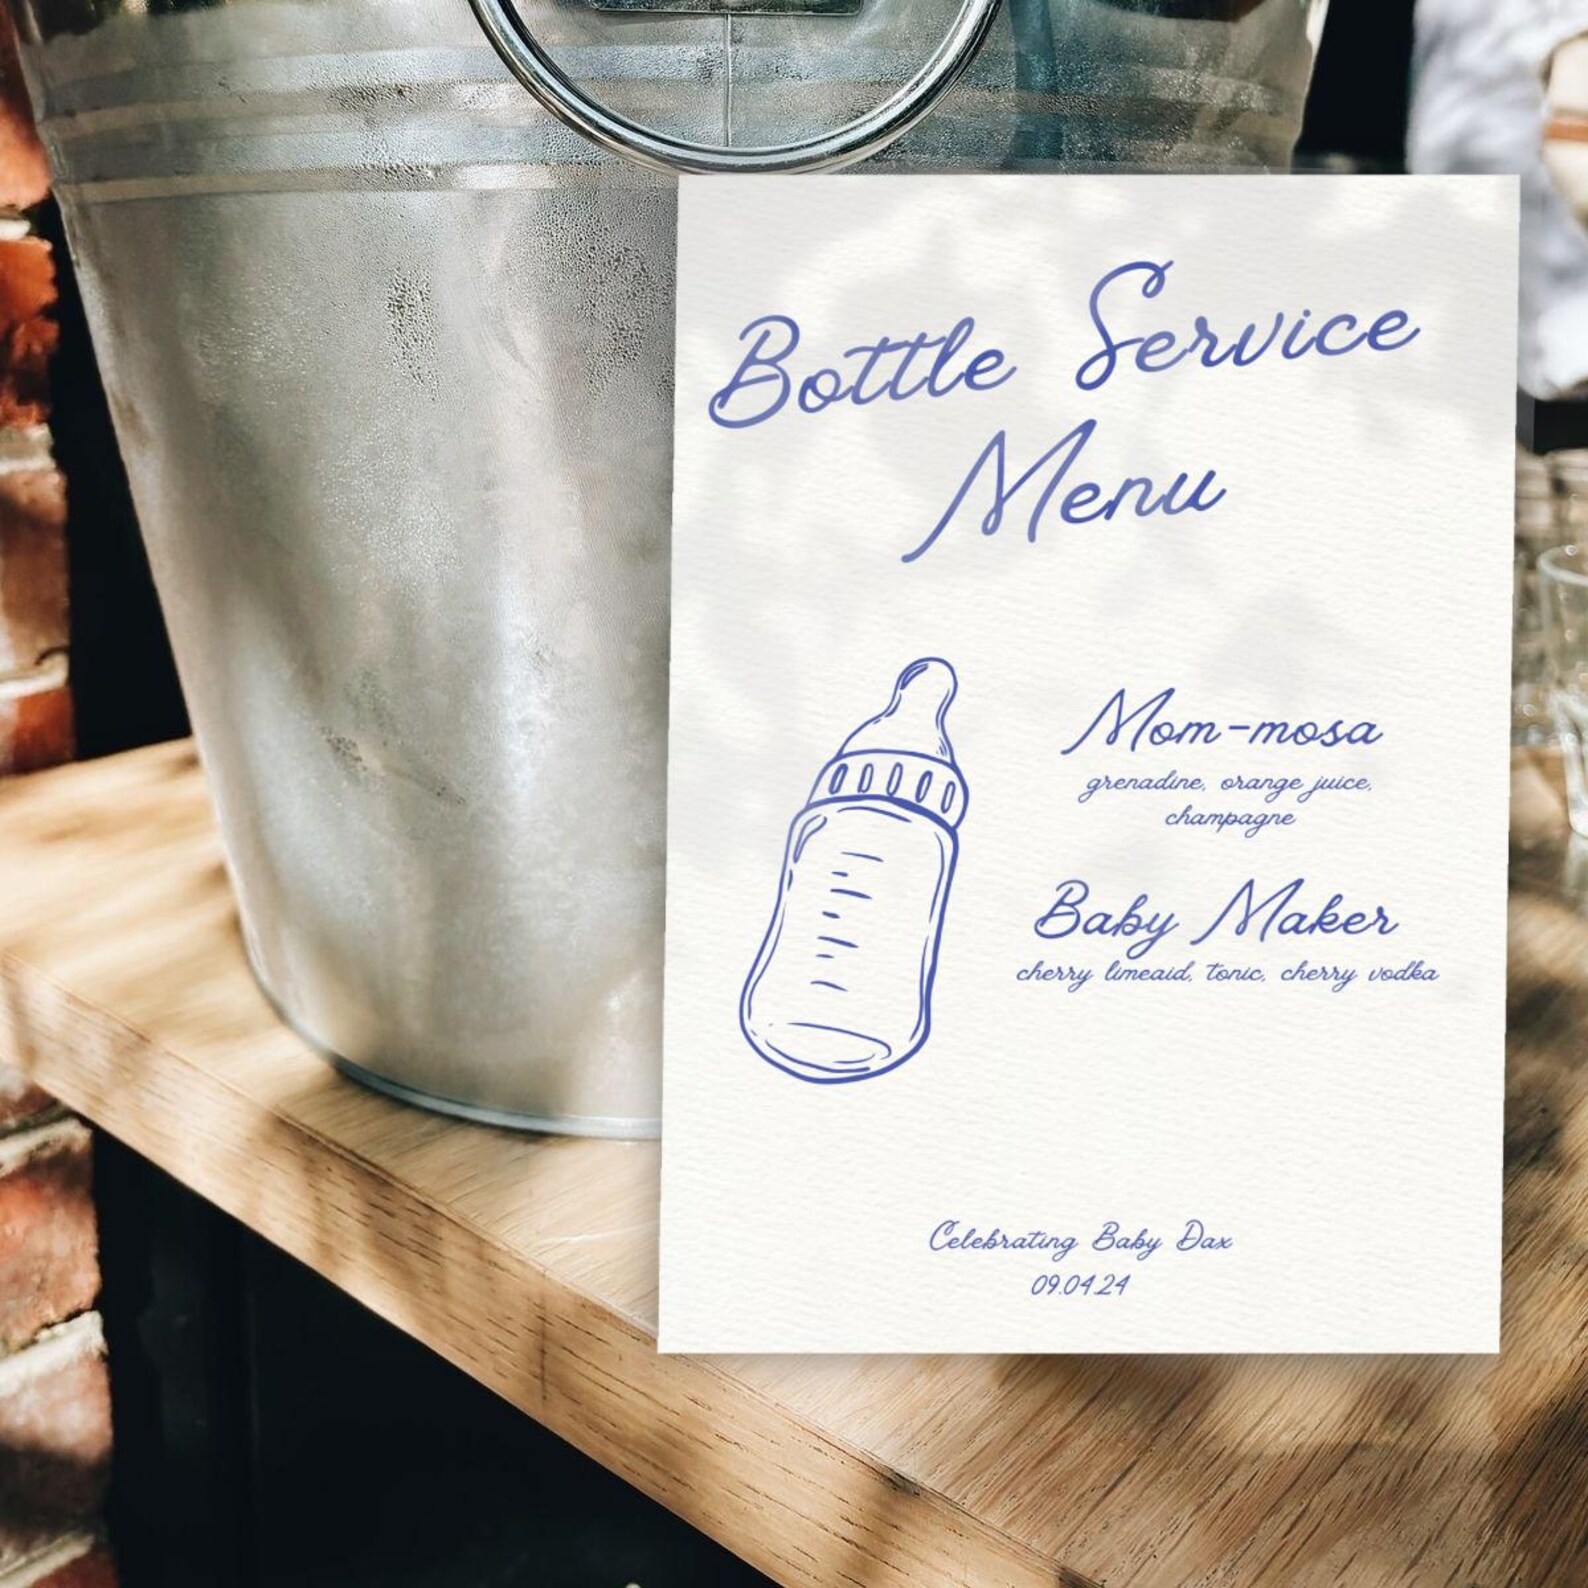 Bottle Service
Menu
Mom-mosa
grenadine, orange juice,
champagne
Baby Maker
cherry limeaid, tonic, cherry vodka
Celebrating Baby Dax
09.04.24